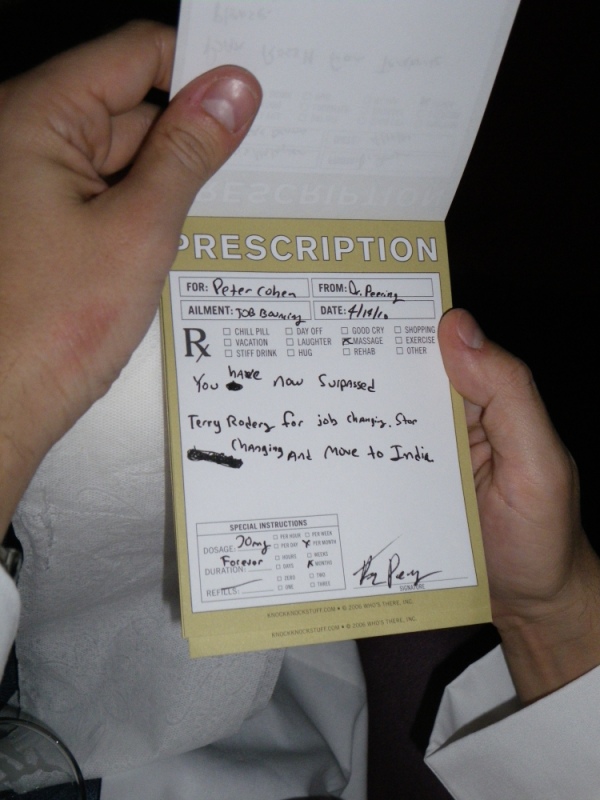 PRESCRIPTION
FOR: Peter Cohen FROM: Dr. Peering
AILMENT: JOB Bouncing DATE: 4/18/10
Rx
CHILL PILL DAY OFF GOOD CRY SHOPPING
VACATION LAUGHTER MASSAGE EXERCISE
STIFF DRINK HUG REHAB OTHER
You have now Surpassed
Terry Rodery for job changing. Star
changing And Move to India
SPECIAL INSTRUCTIONS
DOSAGE: 70mg PER HOUR PER WEEK
PER DAY PER MONTH
DURATION: Forever HOURS WEEKS
DAYS MONTHS
REFILLS: ZERO TWO
ONE THREE
SIGNATURE
KNOCKKNOCKSTUFF.COM • © 2006 WHO'S THERE, INC.
KNOCKKNOCKSTUFF.COM • © 2006 WHO'S THERE, INC.